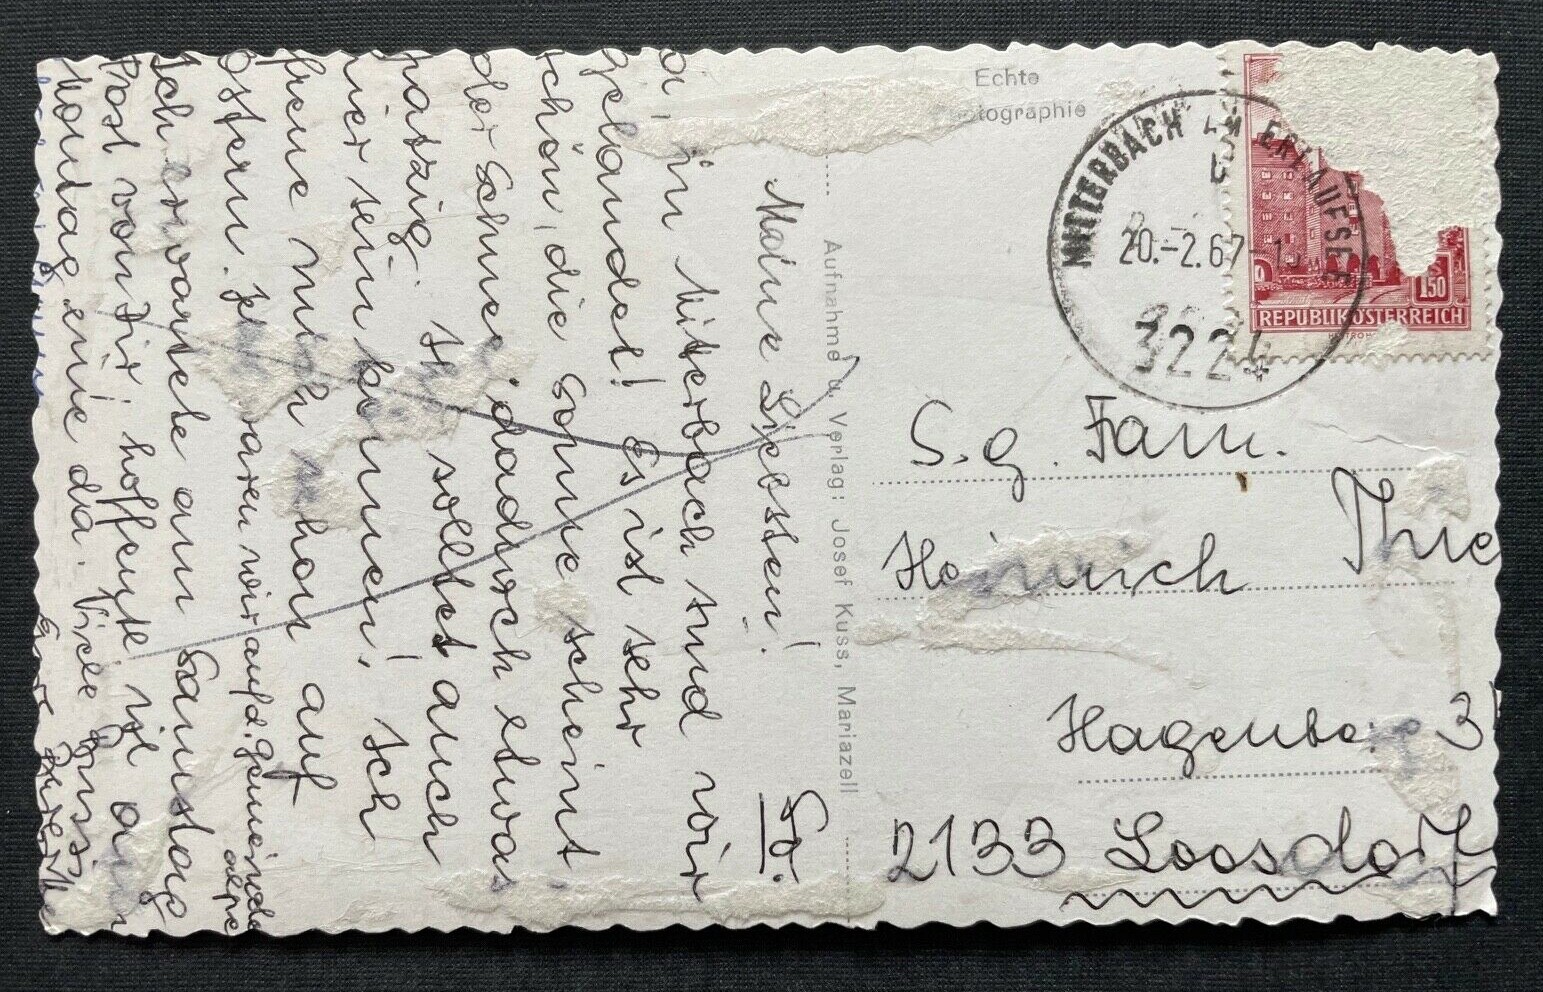 Echte
Photographie
MITTERBACH AM ERLAUFSEE
20.-2.67-1
3224
1.50
REPUBLIK ÖSTERREICH
Aufnahme u. Verlag: Josef Kuss, Mariazell
S.g. Fam.
Heinrich Thie
Hagenberg 3
2133 Loosdorf
Sa.
Meine Liebsten!
in Mitterbach sind wir
gelandet! Es ist sehr
schön, die Sonne scheint,
der Schnee dadurch etwas
patzig. Ihr solltet auch
hier sein können! Ich
freue mich schon auf
Ostern. Jetzt waren wir auf d. Gemeinde
alpe
Ich erwartete am Samstag
Post von Dir! hoffentlich ist am
Montag eine da. Viele Bussi